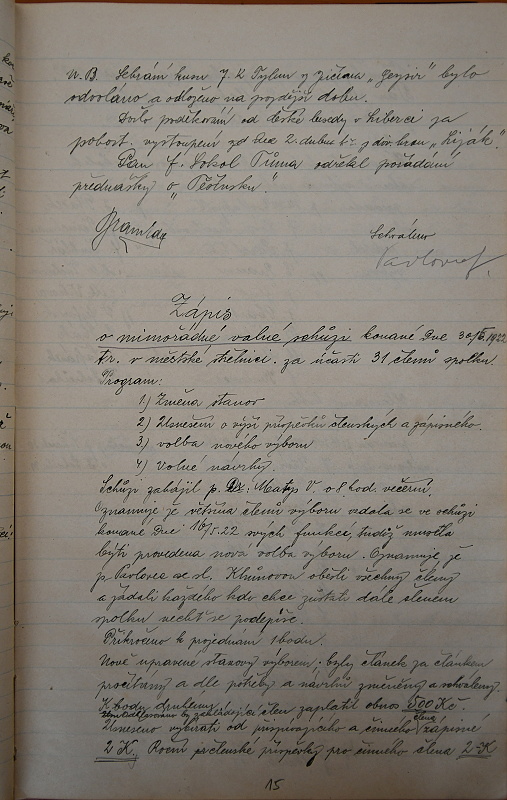 N.B. Sehrání kusu J. K Tylem z Jičína „Gejsir" bylo
odvoláno a odloženo na pozdější dobu.
Došlo poděkování od české besedy v Liberci za
pohost. vystoupení ze dne 2. dubna t.r. z div. hrou „Liják".
Pan f. Sokol Tůma odřekl pořádání
přednášky o „Ročnsku".
Schváleno
Pavlovec
Zápis
o mimořádné valné schůzi konané Dne 30/5. 1922
tr. v městské střelnici. za účasti 31 členů spolku.
Program:
1.) Změna stanov
2.) Usnešení o výši příspěvků členských a zápisného.
3.) volba nového výboru
4.) volné návrhy.
Schůzi zahájil p. Dr: Matys V. o 8 hod. večerní.
Oznamuje že většina členů výboru vzdala se ve schůzi
konané Dne 16/5. 22 svých funkcí, tudíž musila
býti provedena nová volba výboru. Oznamuje že
p. Pavlovec se sl. Khůnovou obešli všechny členy
a žádali každého kdo chce zůstati dále členem
spolku nechť se podepíše.
Přikročeno k projednání 1 bodu.
Nově upravené stanovy výborem. byly článek za článkem
pročítány a dle potřeby a návrhů změněny a schváleny.
K bodu druhému
by zakládající člen zaplatil obnos 500 Kč.
Usneseno vybírati od přispívajícího a činného člena zápisné
2 K. Roční členské příspěvky pro činného člena 2 K
15